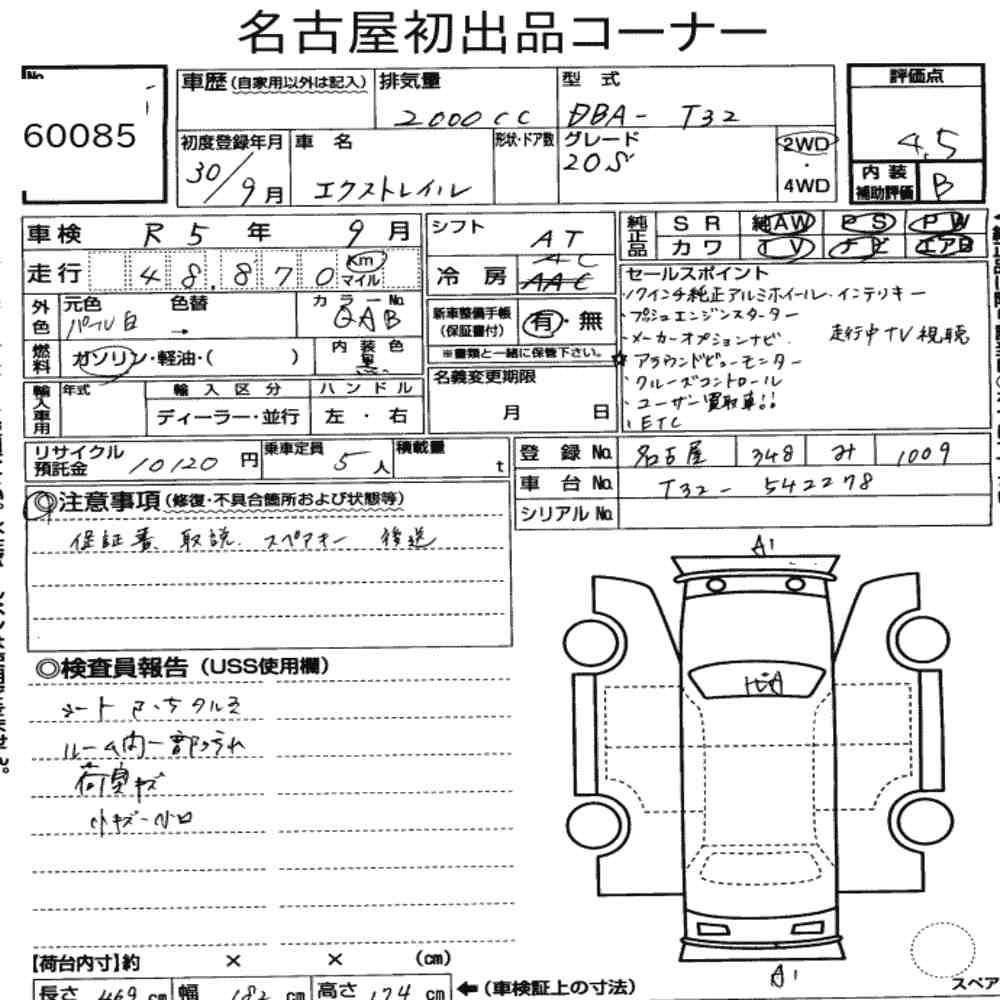 名古屋初出品コーナー
No.
60085
車歴(自家用以外は記入) 排気量 2000cc 型式 DBA- T32
初度登録年月 30/9月 車名 エクストレイル 形状・ドア数 グレード 20S 2WD・4WD
評価点 4.5
内装補助評価 B
車検 R5年 9月
走行 48,870 Km マイル
外色 元色 パール白 色替 → カラーNo. QAB
燃料 ガソリン・軽油・( ) 内装色 黒
輸入車用 年式 輸入区分 ディーラー・並行 ハンドル 左・右
シフト AT
冷房 AC AAC
新車整備手帳(保証書付) 有・無
※書類と一緒に保管下さい。
名義変更期限 月 日
純正品 SR 純AW PS PW
カワ TV ナビ エアB
セールスポイント
・17インチ純正アルミホイール・インテリキー
・プッシュエンジンスターター
・メーカーオプションナビ 走行中TV視聴
☆アラウンドビューモニター
・クルーズコントロール
・ユーザー買取車!!
・ETC
リサイクル預託金 10120円 乗車定員 5人 積載量 t
登録No. 名古屋 348 み 1009
車台No. T32-542278
シリアルNo.
◎注意事項(修復・不具合箇所および状態等)
保証書、取説、スペアキー 後送
◎検査員報告(USS使用欄)
ルーム内一部汚れ
荷室キズ
小キズ・小凹
A1
A1
スペア
【荷台内寸】約 × × (cm)
長さ 469 cm 幅 182 cm 高さ 174 cm ←(車検証上の寸法)